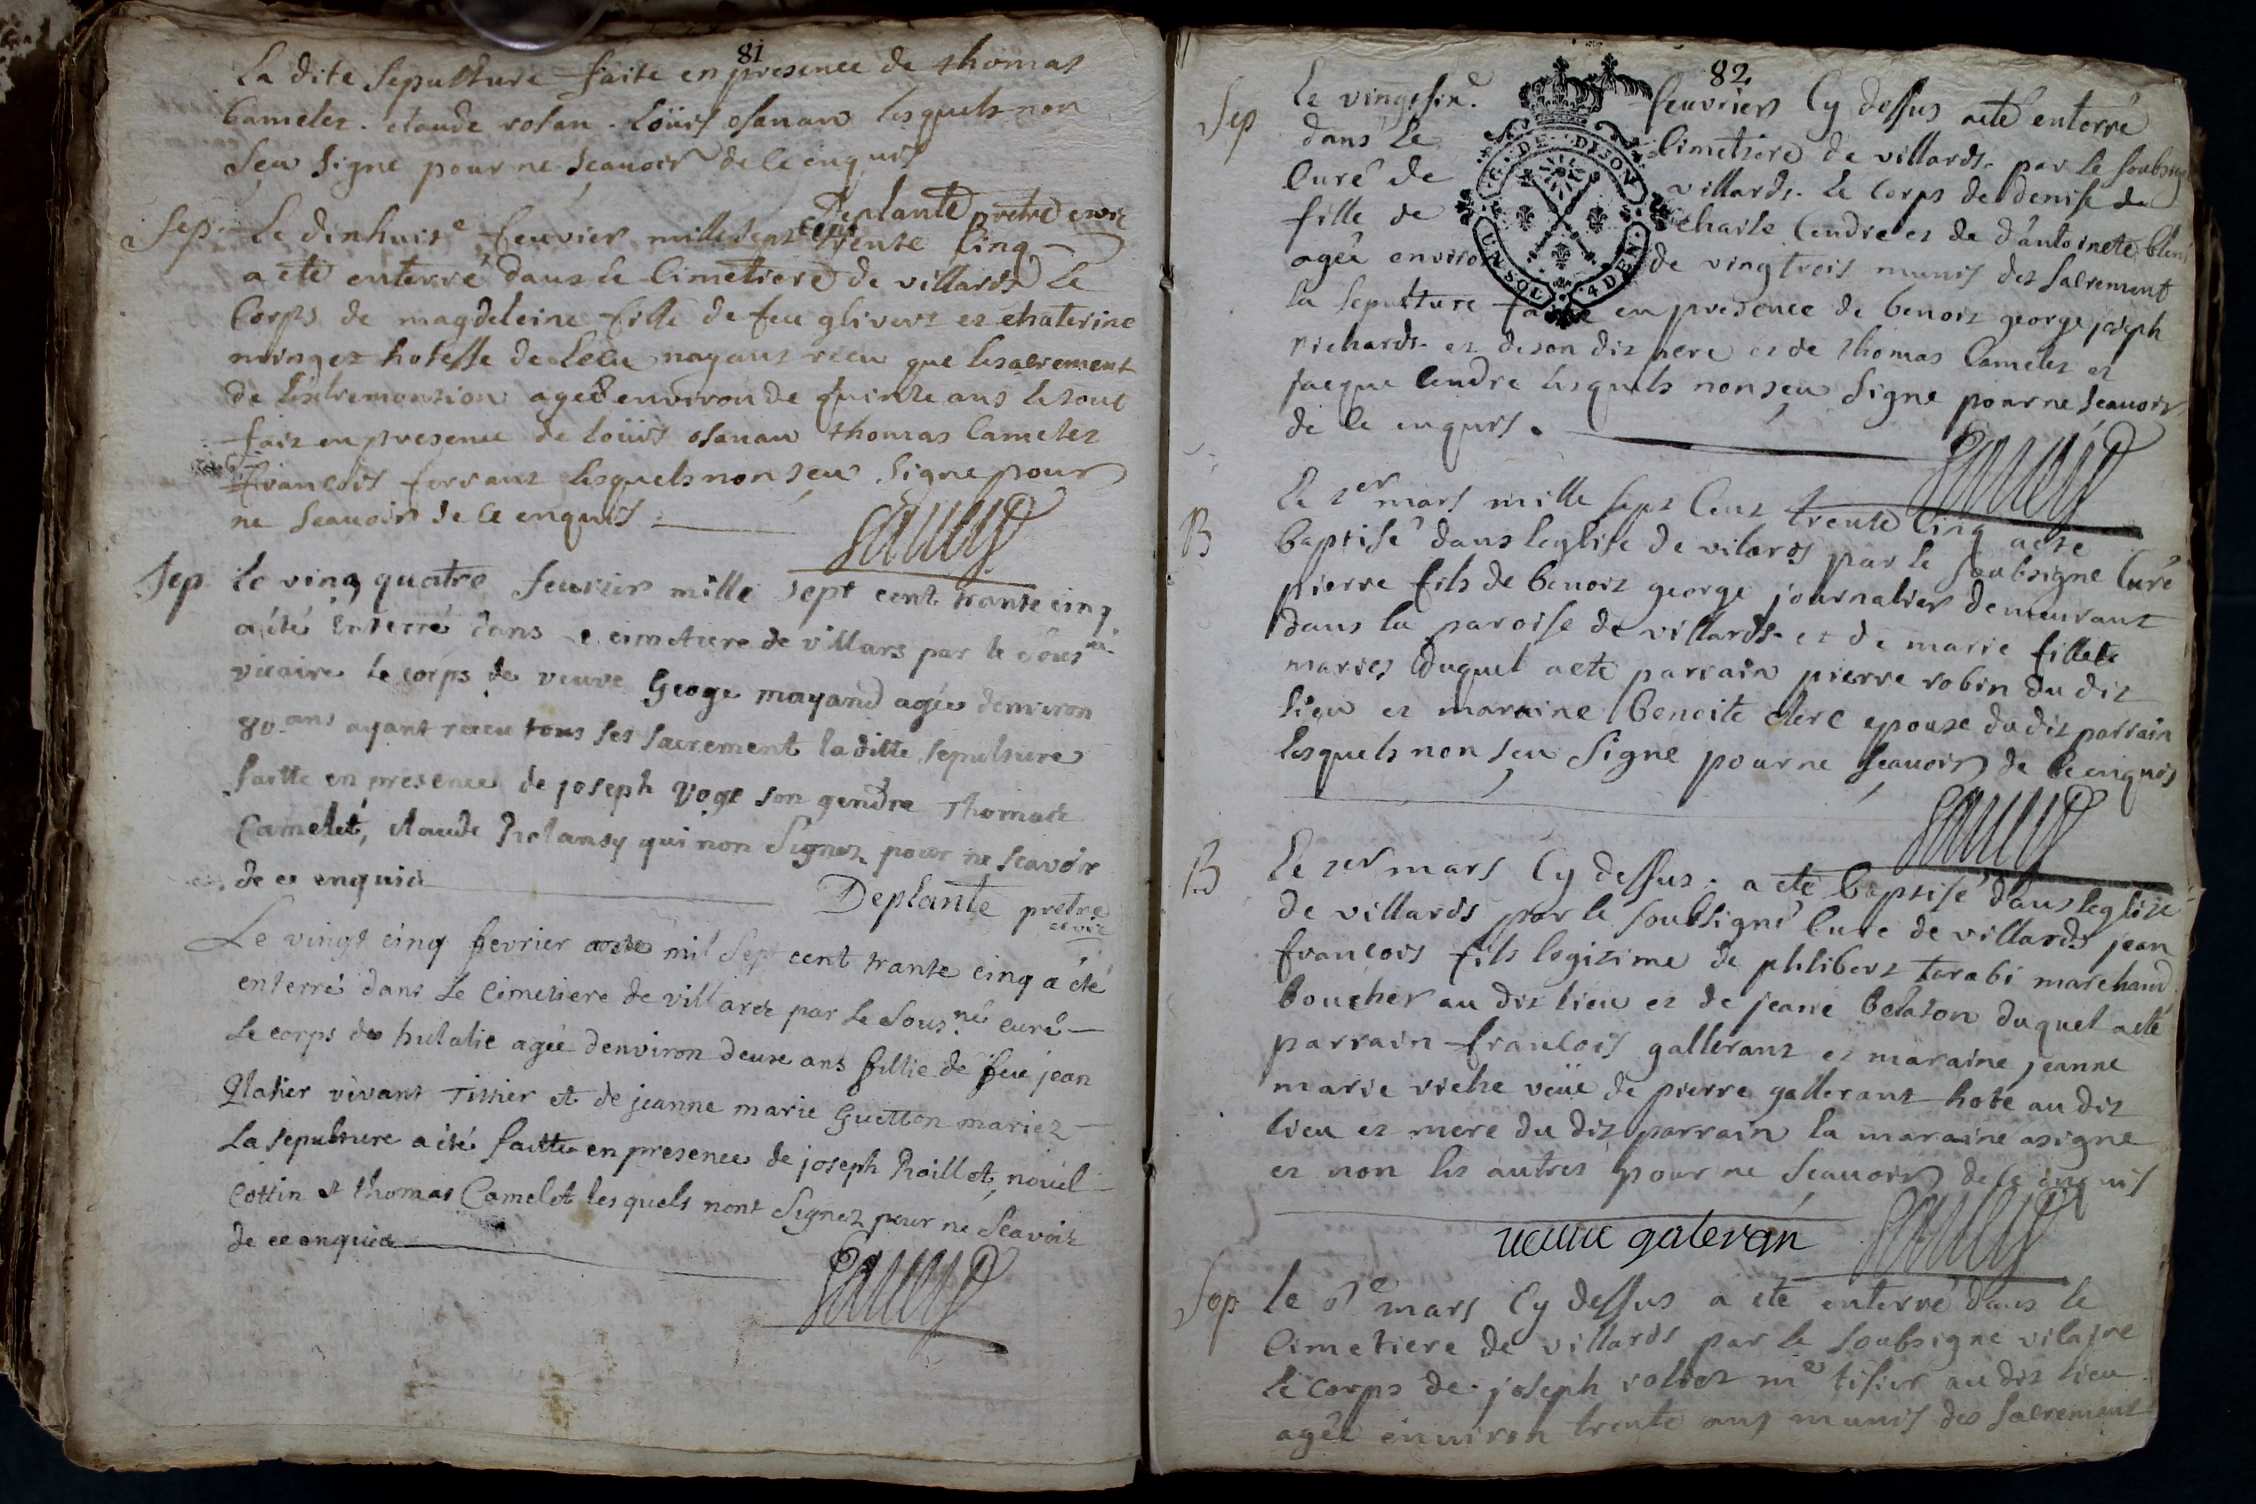 81
La dite Sepulture faite en presence de thomas
Camelet. claude rolan. Loüis osanan lesquels non
Seu Signe pour ne Scauoir de ce enquis
Deplante pretre et vic
Sep. Le dixhuit.e feuvier mille sept cent trente Cinq
a ete enterré dans Le Cimetiere de villards Le
Corps de magdeleine fille de feu et chaterine
hotesse de nayant receu que les acrement
de Lextremontion ageé environ de quinze ans le tout
fait en presence de Loüis osanan thomas Camelet
francois ferrant lesquels non seu Signe pour
ne Scauoir de Ce enquis
Sep Le ving quatre feurier mille sept cent trante cinq
a été Enterré dans le cimetiere de villars par le sous.né
vicaire Le corps de veuve Geoge mayand ageé denviron
80 ans ayant receu tous ses sacrement la ditte sepulture
faitte en presence de joseph Voge son gendre Thomas
Camelet, claude Rolansy qui non Signez pour ne Scavoir
de ce enquis
Deplante pretre
et vic
Le vingt cinq fevrier mil Sept cent trante cinq a été
enterré dans Le Cimetiere de villards par Le Sous.né curé
Le corps de hulalie ageé denviron deuxe ans fillie de feu jean
Platier vivant Tissier et de jeanne marie Guetton mariez
La sepulture a été faitte en presence de joseph Raillot, nouel
Cottin et thomas Camelot les quels nont Signez pour ne Scavoir
de ce enquis
82
G. DE DIJON
UN SOL 4 DEN.
Sep Le vingtsix.e feuvriers Cy dessus a eté enterré
dans Le Cimetiere de villards par Le Soubsigne
Curé de villards. Le Corps de denise
fille de charle Cendre et de d'antoinete
ageé environ de vingtrois munis des Sacrement
La Sepulture faite en presence de benoit george joseph
richards et de son dit pere et de thomas Camelet et
jacque Cendre lesquels non seu Signe pour ne Scauoir
de Ce enquis.
B Le 1er mars mille sept Cent trente Cinq a ete
baptisé dans leglise de vilards par le soubsigne Curé
pierre fils de benoit george journalier demeurant
dans La paroise de villards et de marie fillete
maries Duquel a ete parrain pierre robin du dit
Lieu et maraine benoite clerc epouse du dit parrain
lesquels non seu Signe pour ne Scauoir de Ce enquis
B Le 1er mars Cy dessus. a ete baptisé dans leglise
de villards par le soubsigné Curé de villards jean
francois fils legitime de philibert tarabi marchand
boucher au dit lieu et de jeane belaton duquel a eté
parrain francois gallerant et maraine jeanne
marie riche veüe de pierre gallerant hote au dit
Lieu et mere du dit parrain La maraine a signe
et non les autres pour ne Scauoir de Ce enquis
ueuue galeran
Sep Le 6e mars Cy dessus a ete enterré dans Le
Cimetiere de villards par Le Soubsigne vicaire
Le Corps de joseph m.e tisier au dit Lieu
ageé enuiron trente ans munis des sacremens